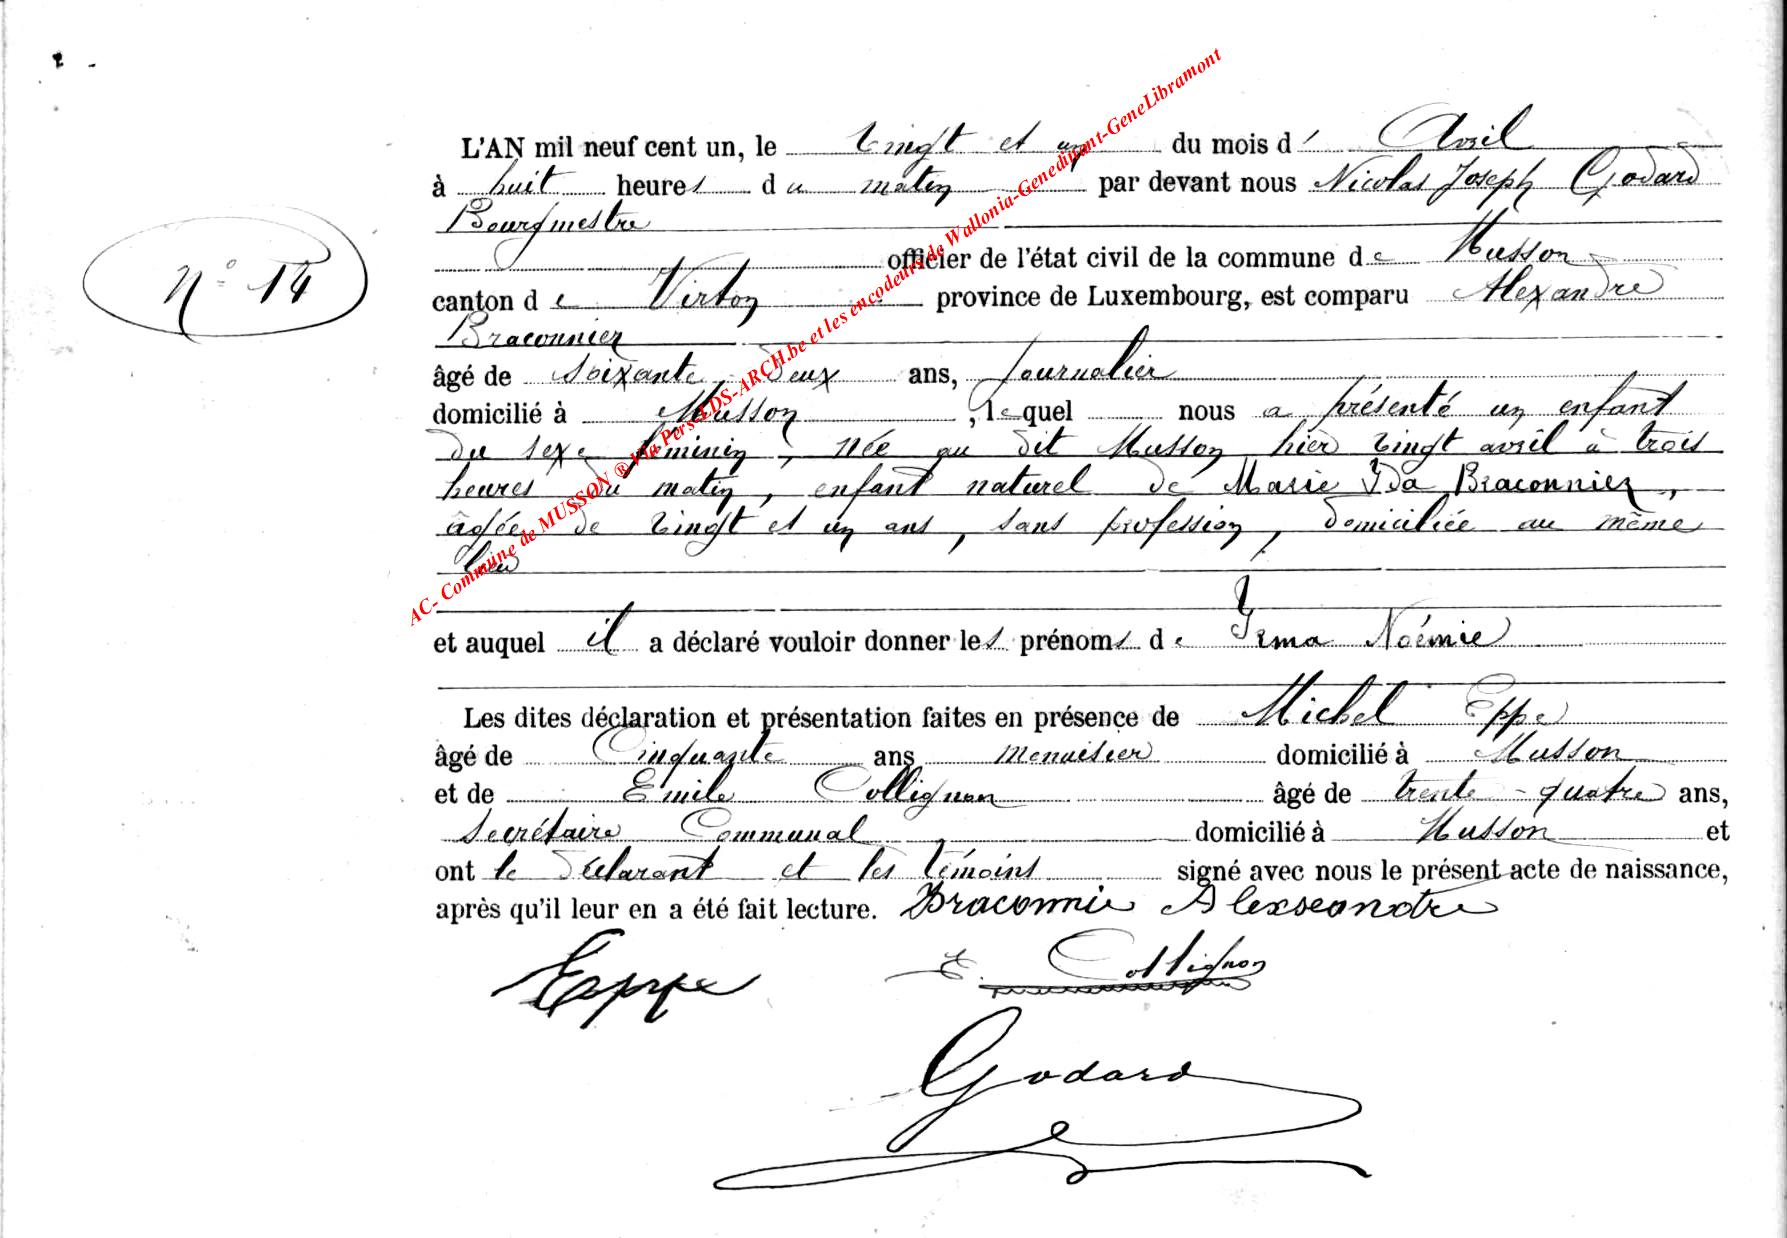 L'AN mil neuf cent un, le vingt et un du mois d' Avril
à huit heures du matin par devant nous Nicolas Joseph Godard
Bourgmestre
officier de l'état civil de la commune de Musson
canton de Virton province de Luxembourg, est comparu Alexandre
Braconnier
N° 14
âgé de soixante deux ans, journalier
domicilié à Musson, lequel nous a présenté un enfant
du sexe féminin, née au dit Musson hier vingt avril à trois
heures du matin, enfant naturel de Marie Ida Braconnier,
âgée de vingt et un ans, sans profession, domiciliée au même
lieu
et auquel il a déclaré vouloir donner les prénoms de Irma Noémie
Les dites déclaration et présentation faites en présence de Michel Eppe
âgé de Cinquante ans menuisier domicilié à Musson
et de Emile Collignon âgé de trente-quatre ans,
secrétaire Communal domicilié à Musson et
ont le déclarant et les témoins signé avec nous le présent acte de naissance,
après qu'il leur en a été fait lecture. Braconnie Alexseandre
Eppe E. Collignon
Godard
AC- Commune de MUSSON ® Via Perso LDS-ARCH.be et les encodeurs de Wallonia-Genedinant-GeneLibramont